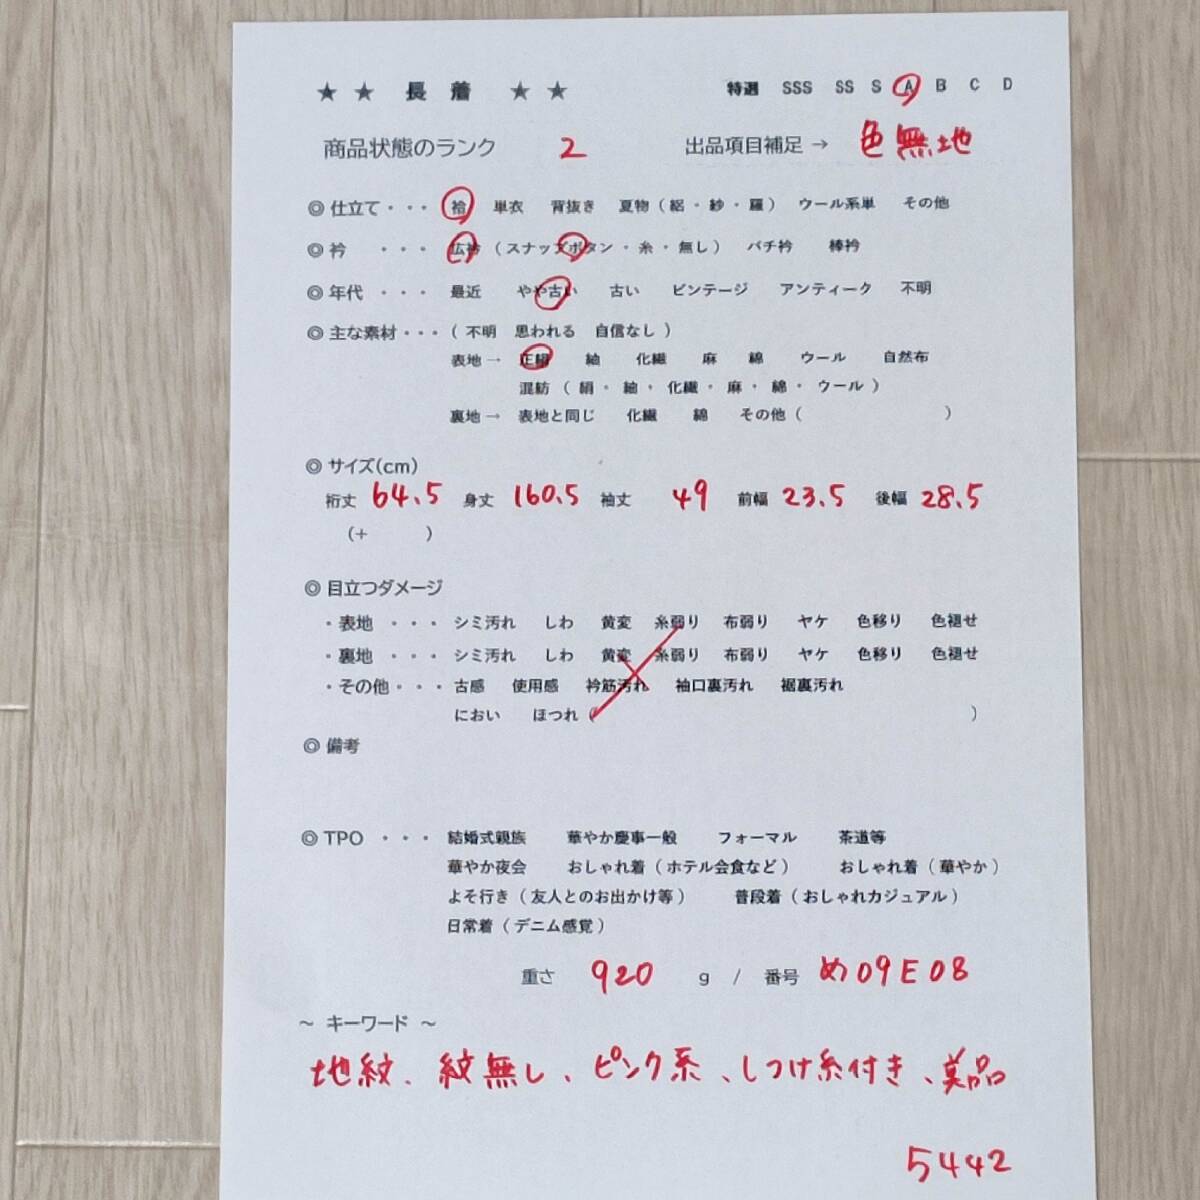 ★ ★ 長 着 ★ ★ 特選 SSS SS S A B C D
商品状態のランク 2 出品項目補足 → 色無地
◎ 仕立て ・・・ 袷 単衣 背抜き 夏物 ( 絽 ・ 紗 ・ 羅 ) ウール系単 その他
◎ 衿 ・・・ 広衿 ( スナップボタン ・ 糸 ・ 無し ) バチ衿 棒衿
◎ 年代 ・・・ 最近 やや古い 古い ビンテージ アンティーク 不明
◎ 主な素材 ・・・ ( 不明 思われる 自信なし )
表地 → 正絹 紬 化繊 麻 綿 ウール 自然布
混紡 ( 絹 ・ 紬 ・ 化繊 ・ 麻 ・ 綿 ・ ウール )
裏地 → 表地と同じ 化繊 綿 その他 ( )
◎ サイズ(cm)
裄丈 64.5 身丈 160.5 袖丈 49 前幅 23.5 後幅 28.5
(+ )
◎ 目立つダメージ
・表地 ・・・ シミ汚れ しわ 黄変 糸弱り 布弱り ヤケ 色移り 色褪せ
・裏地 ・・・ シミ汚れ しわ 黄変 糸弱り 布弱り ヤケ 色移り 色褪せ
・その他 ・・・ 古感 使用感 衿筋汚れ 袖口裏汚れ 裾裏汚れ
におい ほつれ ( )
◎ 備考
◎ TPO ・・・ 結婚式親族 華やか慶事一般 フォーマル 茶道等
華やか夜会 おしゃれ着 ( ホテル会食など ) おしゃれ着 ( 華やか )
よそ行き ( 友人とのお出かけ等 ) 普段着 ( おしゃれカジュアル )
日常着 ( デニム感覚 )
重さ 920 g / 番号 め09E08
～ キーワード ～
地紋、紋無し、ピンク系、しつけ糸付き、美品
5442